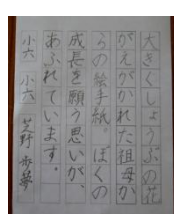 大きくしょうぶの花
がえがかれた祖母か
らの絵手紙。ぼくの
成長を願う思いが、
あふれています。
小六 小六 芝野 歩夢